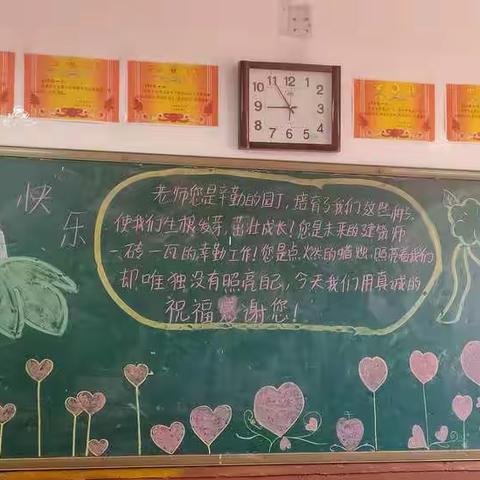 11 12 1
10 2
9 3
8 4
7 6 5
快
乐
老师您是辛勤的园丁,培育了我们这些
使我们生根发芽,茁壮成长!您是未来的建筑师
一砖一瓦的幸勤工作!您是点燃的蜡烛,照亮着我们
却唯独没有照亮自己,今天我们用真诚的
祝福感谢您!